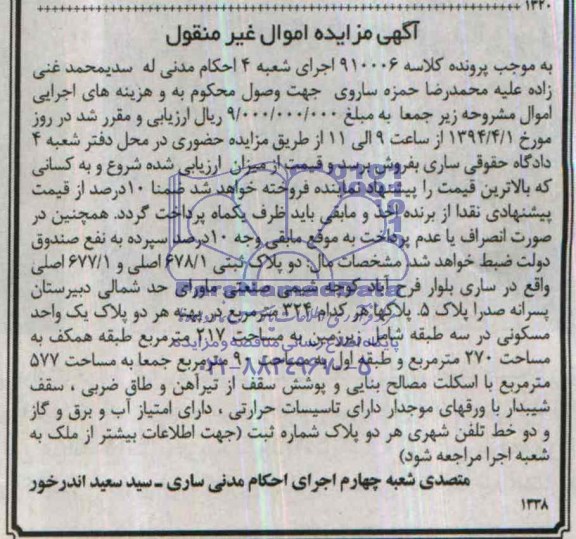 ۱۳۲۰
آگهی مزایده اموال غیر منقول
به موجب پرونده کلاسه ۹۱۰۰۰۶ اجرای شعبه ۴ احکام مدنی له سدیمحمد غنی
زاده علیه محمدرضا حمزه ساروی جهت وصول محکوم به و هزینه های اجرایی
اموال مشروحه زیر جمعا به مبلغ ۹/۰۰۰/۰۰۰/۰۰۰ ریال ارزیابی و مقرر شد در روز
مورخ ۱۳۹۴/۴/۱ از ساعت ۹ الی ۱۱ از طریق مزایده حضوری در محل دفتر شعبه ۴
دادگاه حقوقی ساری بفروش برسد و قیمت از میزان ارزیابی شده شروع و به کسانی
که بالاترین قیمت را پیشنهاد نماینده فروخته خواهد شد ضمنا ۱۰درصد از قیمت
پیشنهادی نقدا از برنده اخذ و مابقی باید ظرف یکماه پرداخت گردد. همچنین در
صورت انصراف یا عدم پرداخت به موقع مابقی وجه ۱۰درصد سپرده به نفع صندوق
دولت ضبط خواهد شد. مشخصات مال: دو پلاک ثبتی ۶۷۸/۱ اصلی و ۶۷۷/۱ اصلی
واقع در ساری بلوار فرح آباد کوچه شیمی صنعتی ماورای حد شمالی دبیرستان
پسرانه صدرا پلاک ۵. پلاکها هر کدام ۳۲۴ مترمربع در پهنه هر دو پلاک یک واحد
مسکونی در سه طبقه شامل زیرزمین به مساحت ۲۱۷ مترمربع طبقه همکف به
مساحت ۲۷۰ مترمربع و طبقه اول به مساحت ۹۰ مترمربع جمعا به مساحت ۵۷۷
مترمربع با اسکلت مصالح بنایی و پوشش سقف از تیرآهن و طاق ضربی ، سقف
شیبدار با ورقهای موجدار دارای تاسیسات حرارتی ، دارای امتیاز آب و برق و گاز
و دو خط تلفن شهری هر دو پلاک شماره ثبت (جهت اطلاعات بیشتر از ملک به
شعبه اجرا مراجعه شود)
متصدی شعبه چهارم اجرای احکام مدنی ساری ـ سید سعید اندرخور
۱۳۳۸